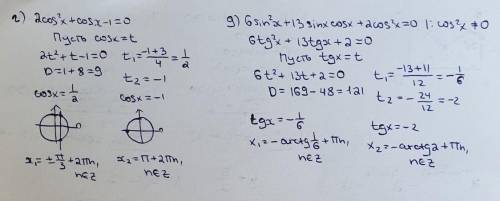 г) 2cos²x+cosx-1=0
Пусть cosx=t
2t²+t-1=0
D=1+8=9
t₁=(-1+3)/4=1/2
t₂=-1
cosx=1/2
cosx=-1
x₁=±π/3+2πn,
n∈Z
x₂=π+2πn,
n∈Z
g) 6sin²x+13sinxcosx+2cos²x=0 |:cos²x≠0
6tg²x+13tgx+2=0
Пусть tgx=t
6t²+13t+2=0
D=169-48=121
t₁=(-13+11)/12=-1/6
t₂=-24/12=-2
tgx=-1/6
x₁=-arctg1/6+πn,
n∈Z
tgx=-2
x₂=-arctg2+πn,
n∈Z